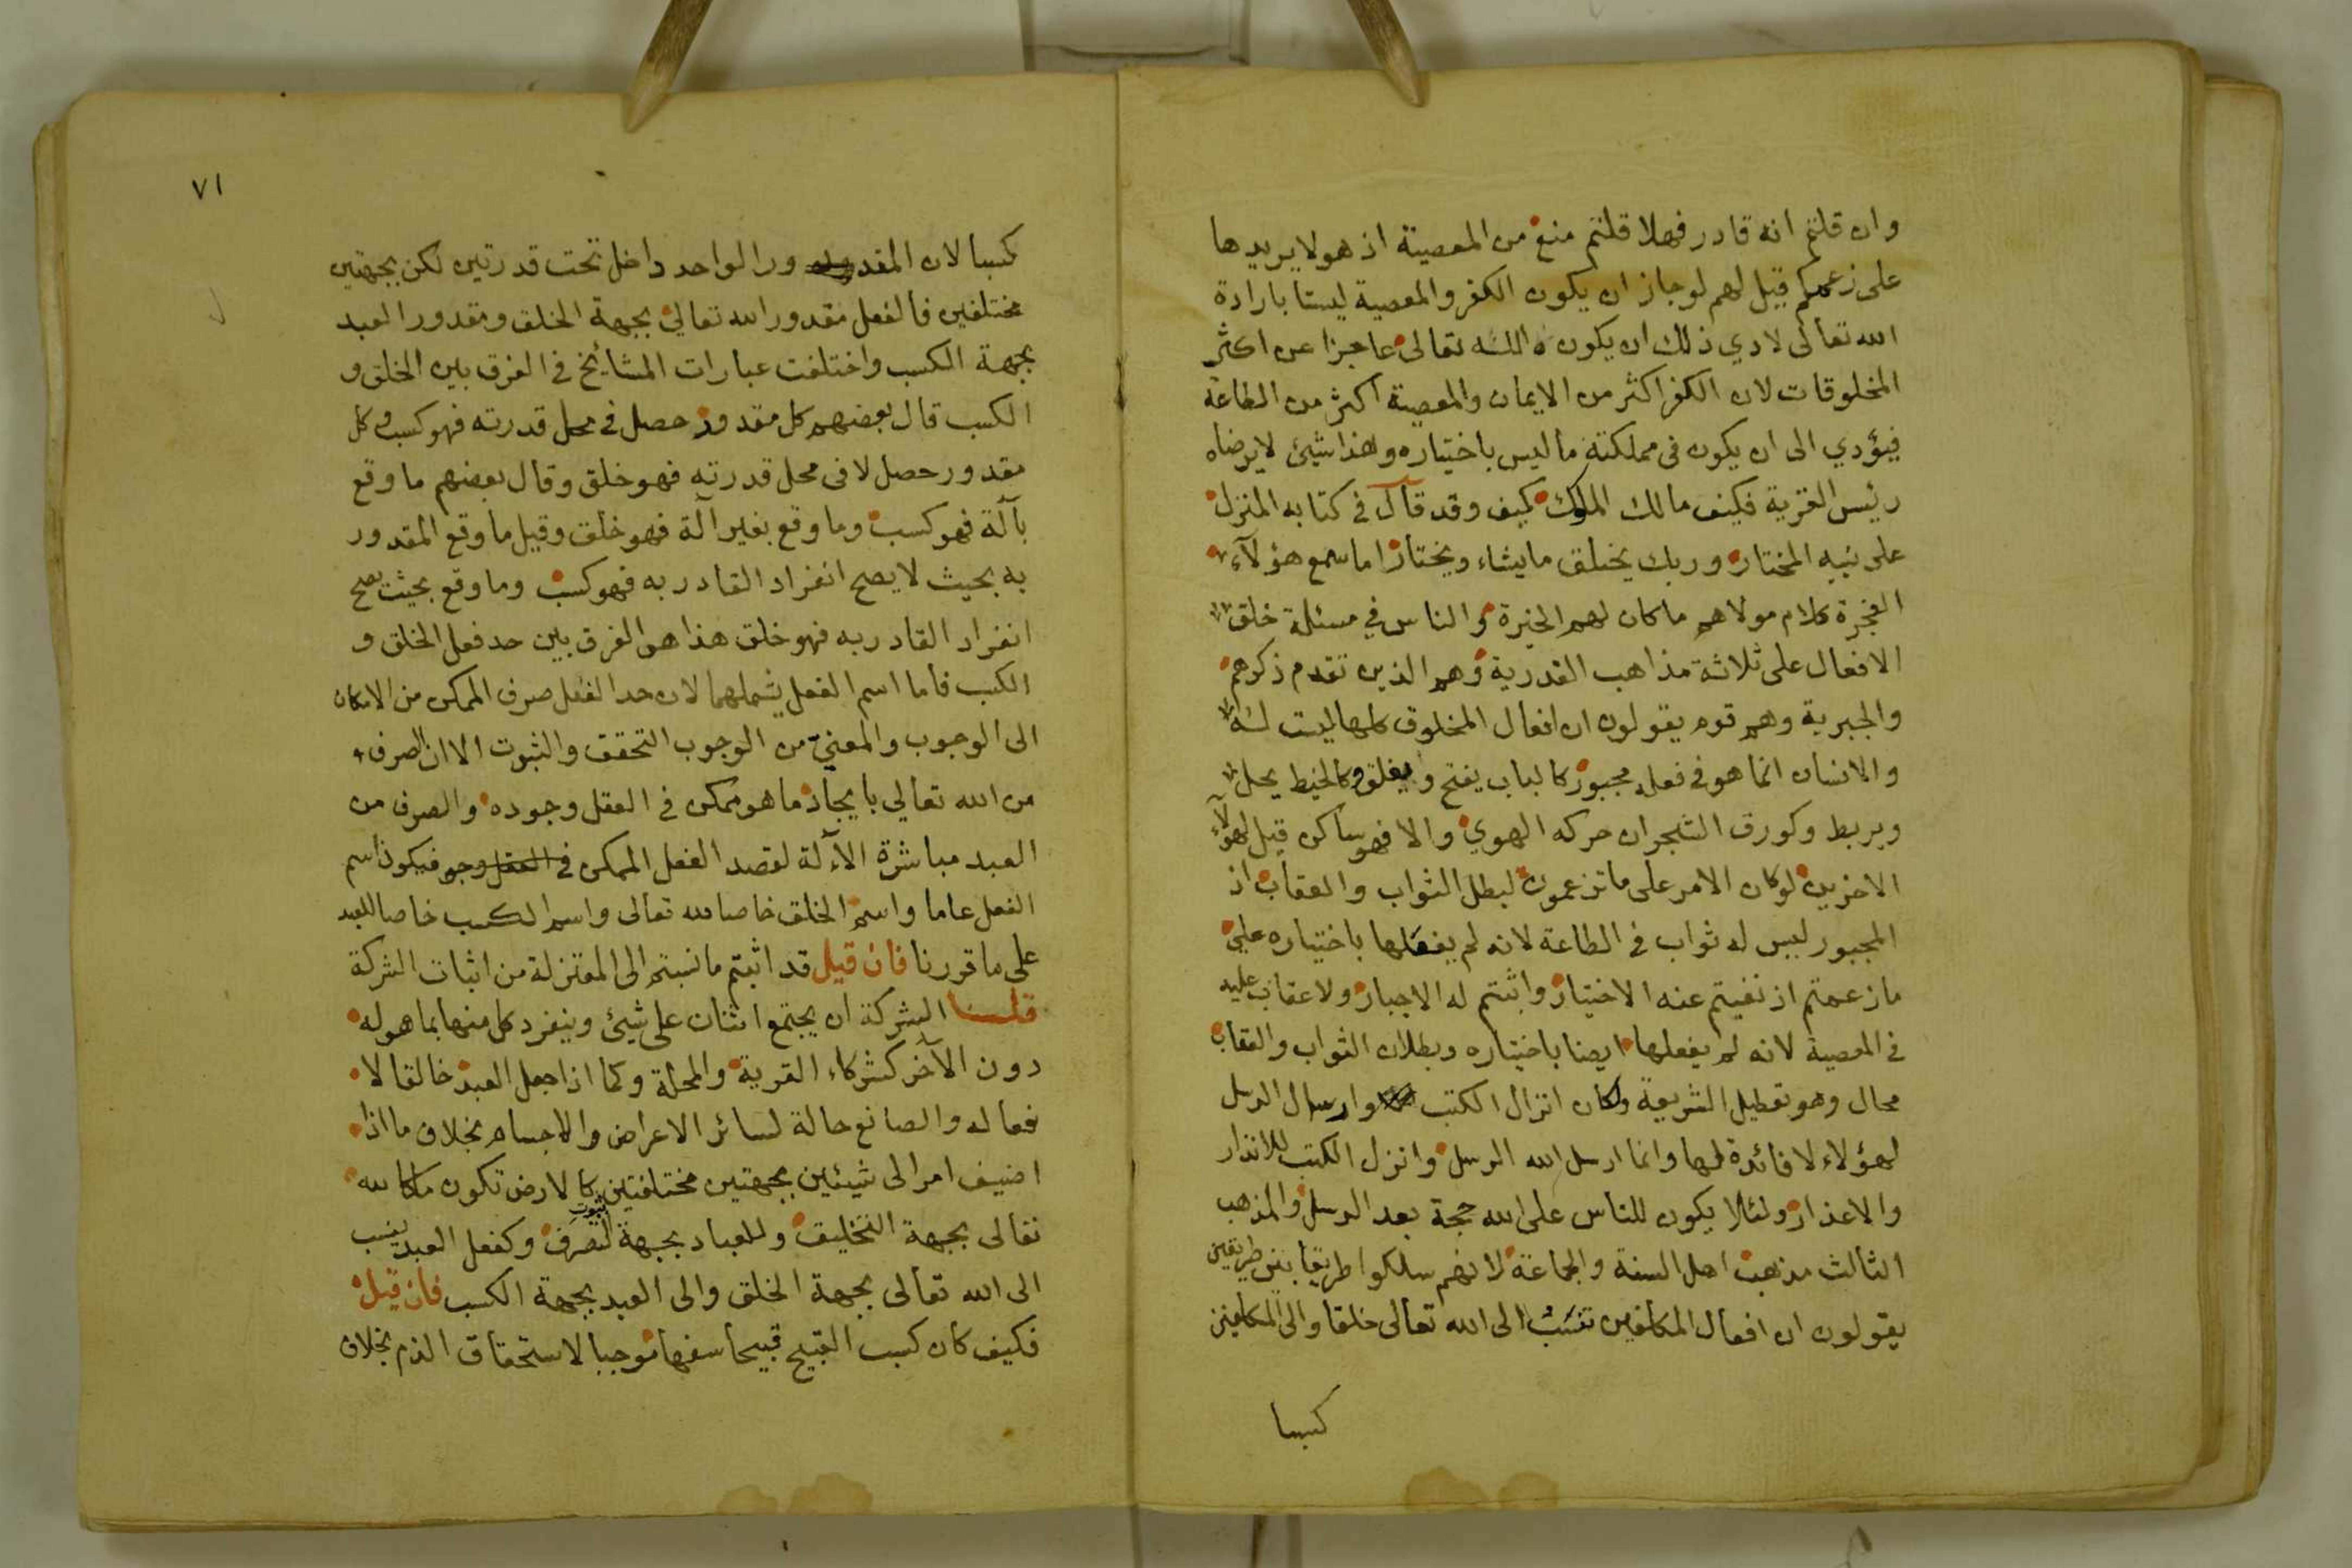 وان قلتم انه قادر فهلا قلتم منع من المعصية اذ هو لا يريدها
على زعمكم قيل لهم لو جاز ان يكون الكفر والمعصية ليستا بارادة
الله تعالى لادي ذلك ان يكون الله تعالى عاجزا عن اكثر
المخلوقات لان الكفر اكثر من الايمان والمعصية اكثر من الطاعة
فيؤدي الى ان يكون في مملكته ما ليس باختياره وهذا شيئ لا يرضاه
رئيس القرية فكيف مالك الملوك كيف وقد قال في كتابه المنزل
على نبيه المختار وربك يخلق ما يشاء ويختار اما سمع هؤلآء
الفجرة كلام مولاهم ما كان لهم الخيرة والناس في مسئلة خلق
الافعال على ثلاثة مذاهب القدرية وهم الذين تقدم ذكرهم
والجبرية وهم قوم يقولون ان افعال المخلوق كلها ليست له
والانسان انما هو في فعله مجبور كالباب يفتح ويغلق وكالخيط يحل
ويربط وكورق الشجر ان حركه الهوي والا فهو ساكن قيل لهؤلآء
الاخرين لو كان الامر على ما تزعمون لبطل الثواب والعقاب اذ
المجبور ليس له ثواب في الطاعة لانه لم يفعلها باختياره علي
ما زعمتم اذ نفيتم عنه الاختيار واثبتم له الاجبار ولا عقاب عليه
في المعصية لانه لم يفعلها ايضا باختياره وبطلان الثواب والعقاب
محال وهو تعطيل الشريعة ولكان انزال الكتب وارسال الرسل
لهؤلاء لا فائدة لها وانما ارسل الله الرسل وانزل الكتب للانذار
والاعذار ولئلا يكون للناس على الله حجة بعد الرسل والمذهب
الثالث مذهب اهل السنة والجماعة لانهم سلكوا طريقا بين طريقين
يقولون ان افعال المكلفين تنسب الى الله تعالى خلقا والى المكلفين
كسبا
٧١
كسبا لان المقدور الواحد داخل تحت قدرتين لكن بجهتين
مختلفين فالفعل مقدور الله تعالي بجهة الخلق ومقدور العبد
بجهة الكسب واختلفت عبارات المشايخ في الفرق بين الخلق و
الكسب قال بعضهم كل مقدور حصل في محل قدرته فهو كسب وكل
مقدور حصل لا في محل قدرته فهو خلق وقال بعضهم ما وقع
بآلة فهو كسب وما وقع بغير آلة فهو خلق وقيل ما وقع المقدور
به بحيث لا يصح انفراد القادر به فهو كسب وما وقع بحيث يصح
انفراد القادر به فهو خلق هذا هو الفرق بين حد فعل الخلق و
الكسب فاما اسم الفعل يشملهما لان حد الفعل صرف الممكن من الامكان
الى الوجوب والمعني من الوجوب التحقق والثبوت الا ان الصرف
من الله تعالي بايجاد ما هو ممكن في العقل وجوده والصرف من
العبد مباشرة الآلة لقصد الفعل الممكن في العقل وجو فيكون اسم
الفعل عاما واسم الخلق خاصا لله تعالى واسم الكسب خاصا للعبد
على ما قررنا فان قيل قد اثبتم ما نسبتم الى المعتزلة من اثبات الشركة
قلنا الشركة ان يجتمع اثنان على شيئ وينفرد كل منهما بما هو له
دون الآخر كشركاء القرية والمحلة وكما اذا جعل العبد خالقا لا
فعاله والصانع حالة لسائر الاعراض والاجسام بخلاف ما اذا
اضيف امر الى شيئين بجهتين مختلفتين كالارض تكون ملكا لله
تعالى بجهة التخليق وللعباد بجهة ثبوت التصرف وكفعل العبد ينسب
الى الله تعالى بجهة الخلق والى العبد بجهة الكسب فان قيل
فكيف كان كسب القبيح قبيحا سفها موجبا لاستحقاق الذم بخلاف